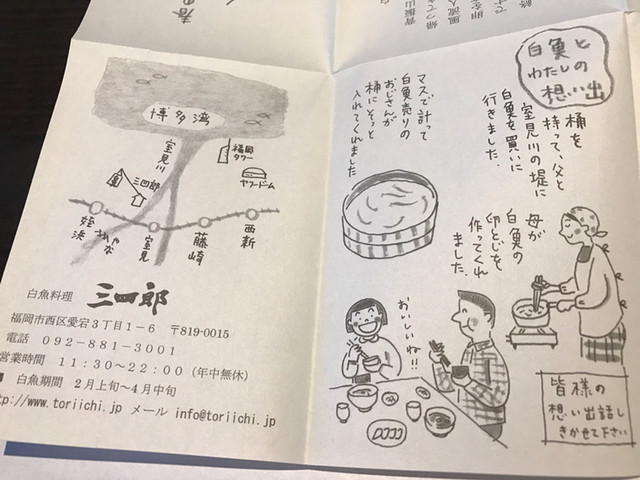 春の
白魚と
わたしの
想い出
桶を
持って、父と
室見川の堤に
白魚を買いに
行きました。
マスで計って
白魚売りの
おじさんが
桶にそっと
入れてくれました
母が
白魚の
卵とじを
作ってくれ
ました。
おいしいね!!
皆様の
想い出話し
きかせて下さい
博多湾
室見川
福岡
タワー
ヤフードーム
三四郎
姪浜
室見
藤崎
西新
白魚料理 三四郎
福岡市西区愛宕3丁目1-6 〒819-0015
電話 092-881-3001
営業時間 11:30~22:00(年中無休)
■ 白魚期間 2月上旬~4月中旬
tp://www.toriichi.jp メール info@toriichi.jp